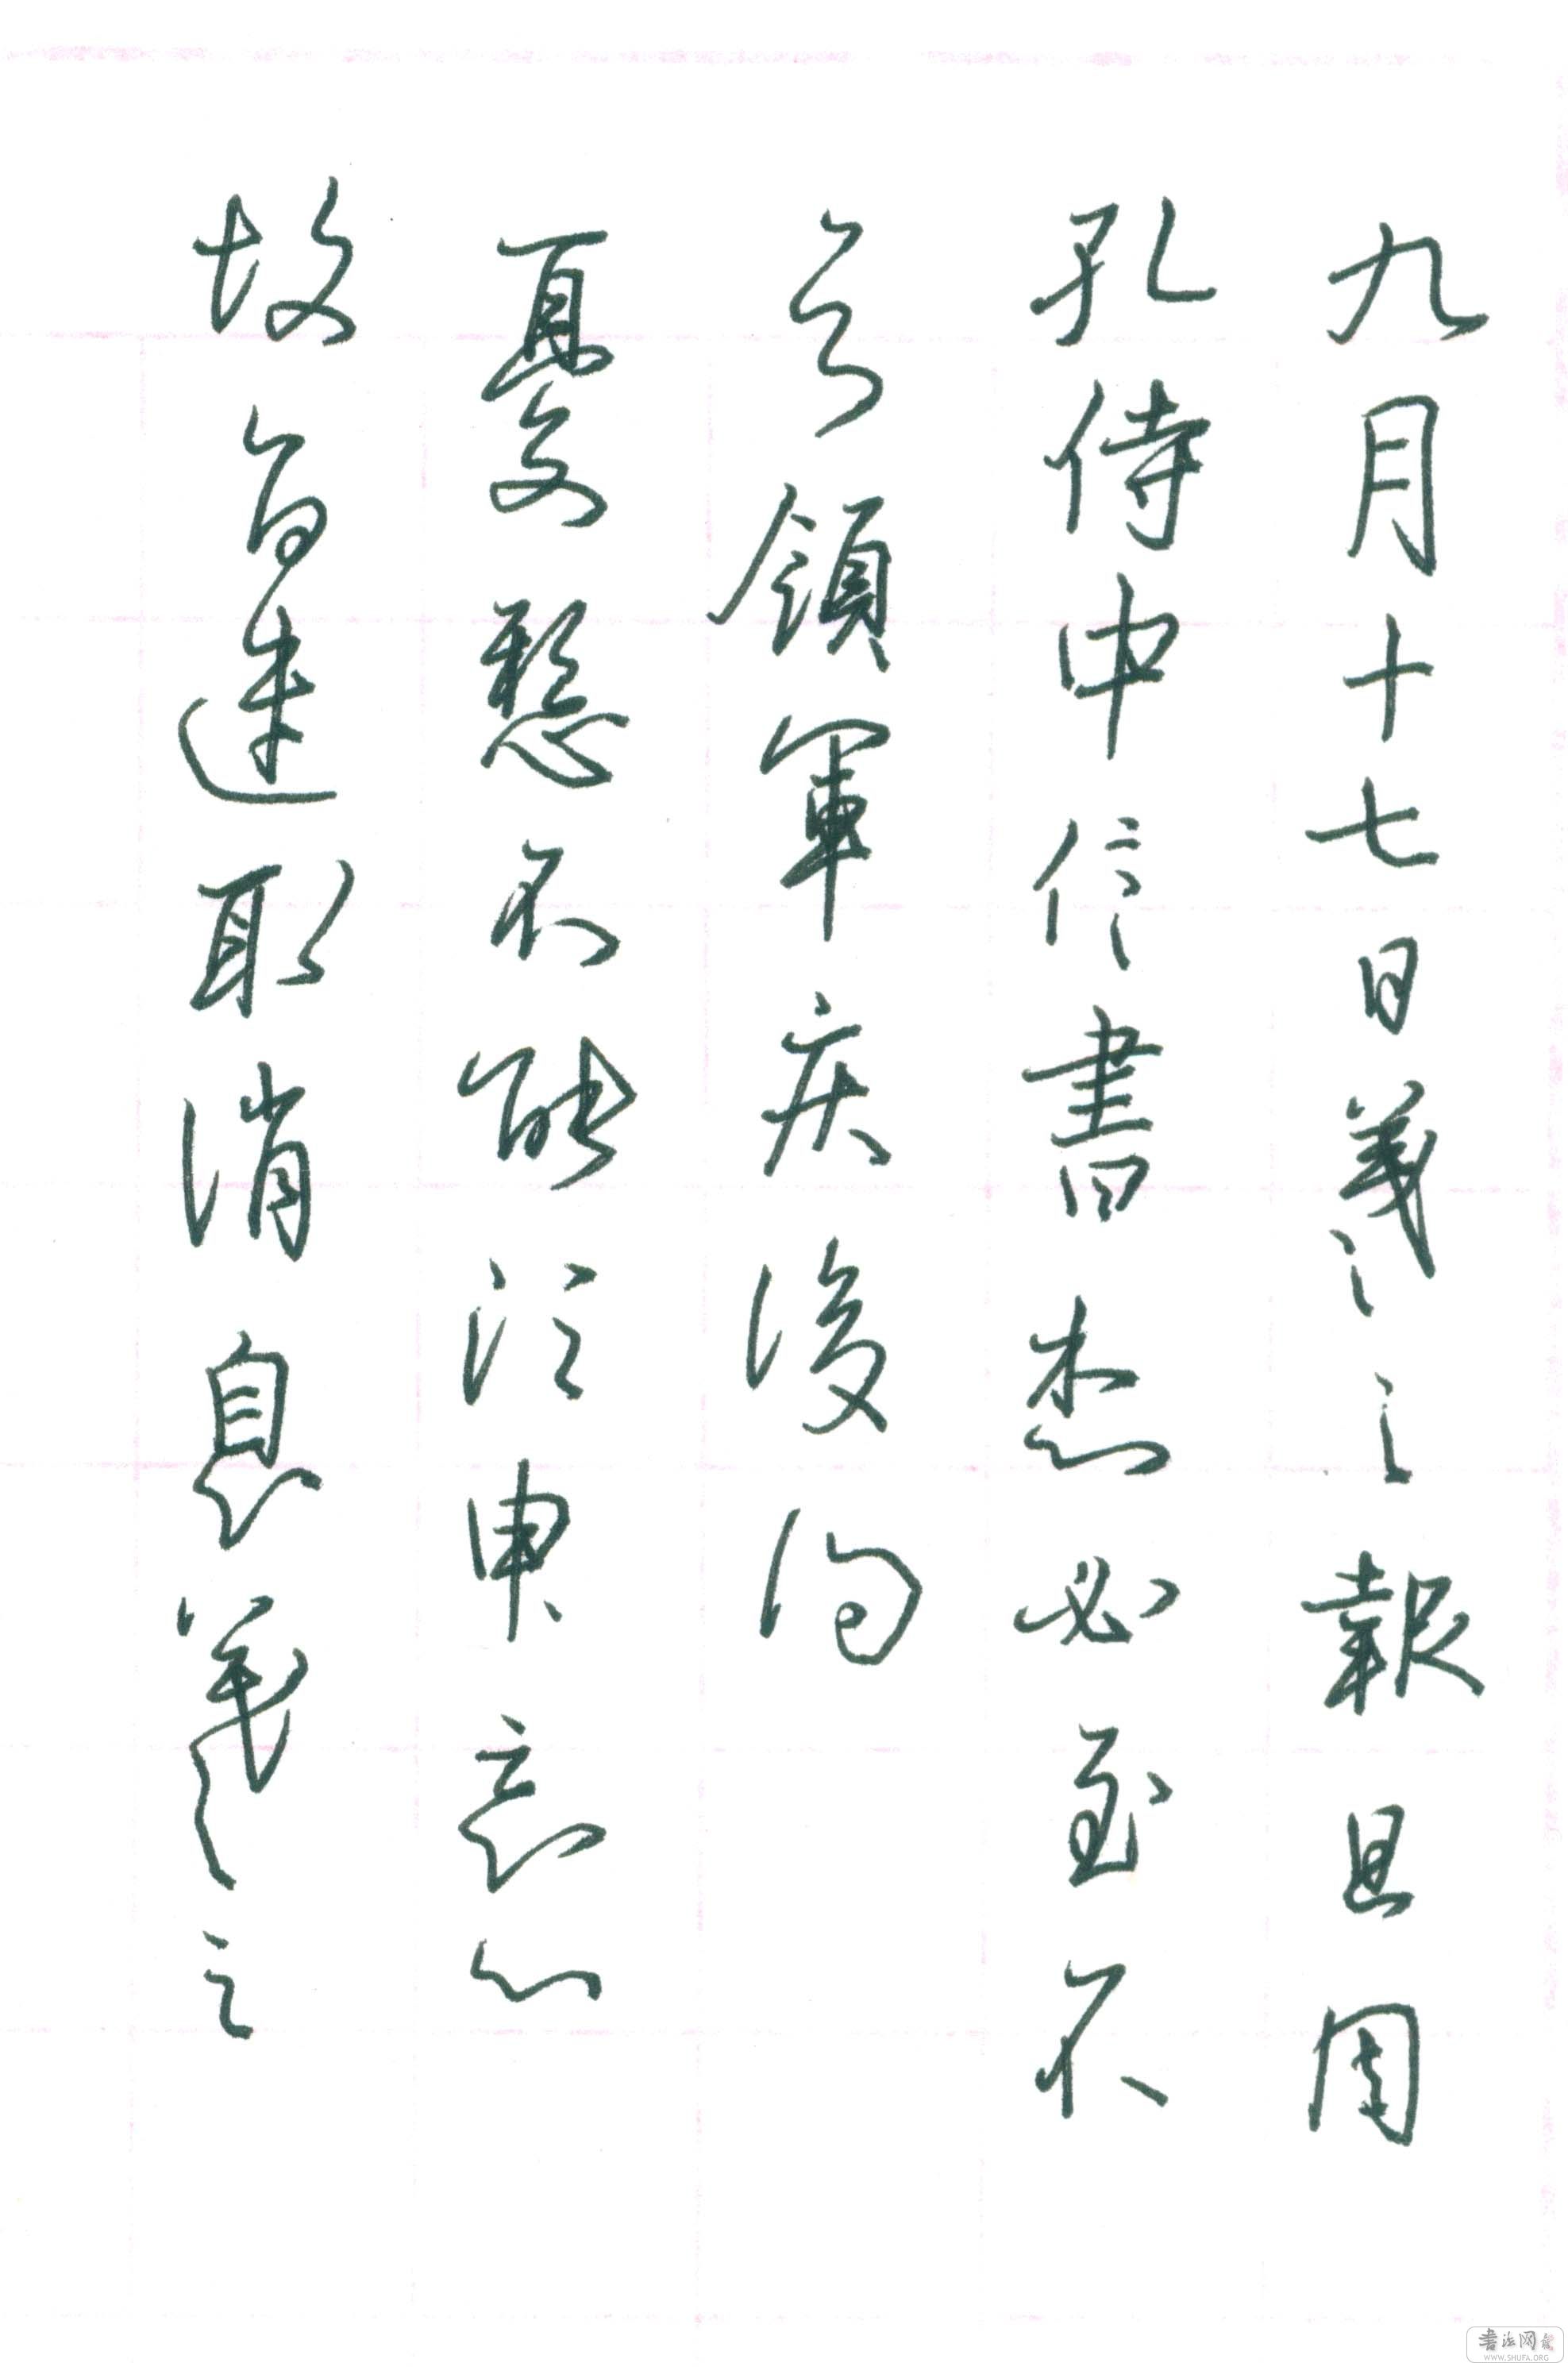 九月十七日羲之報且因
孔侍中信書想必至不
知領軍疾後問
憂懸不能須臾忘心
故旨遣取消息羲之
書法网
WWW.SHUFA.ORG